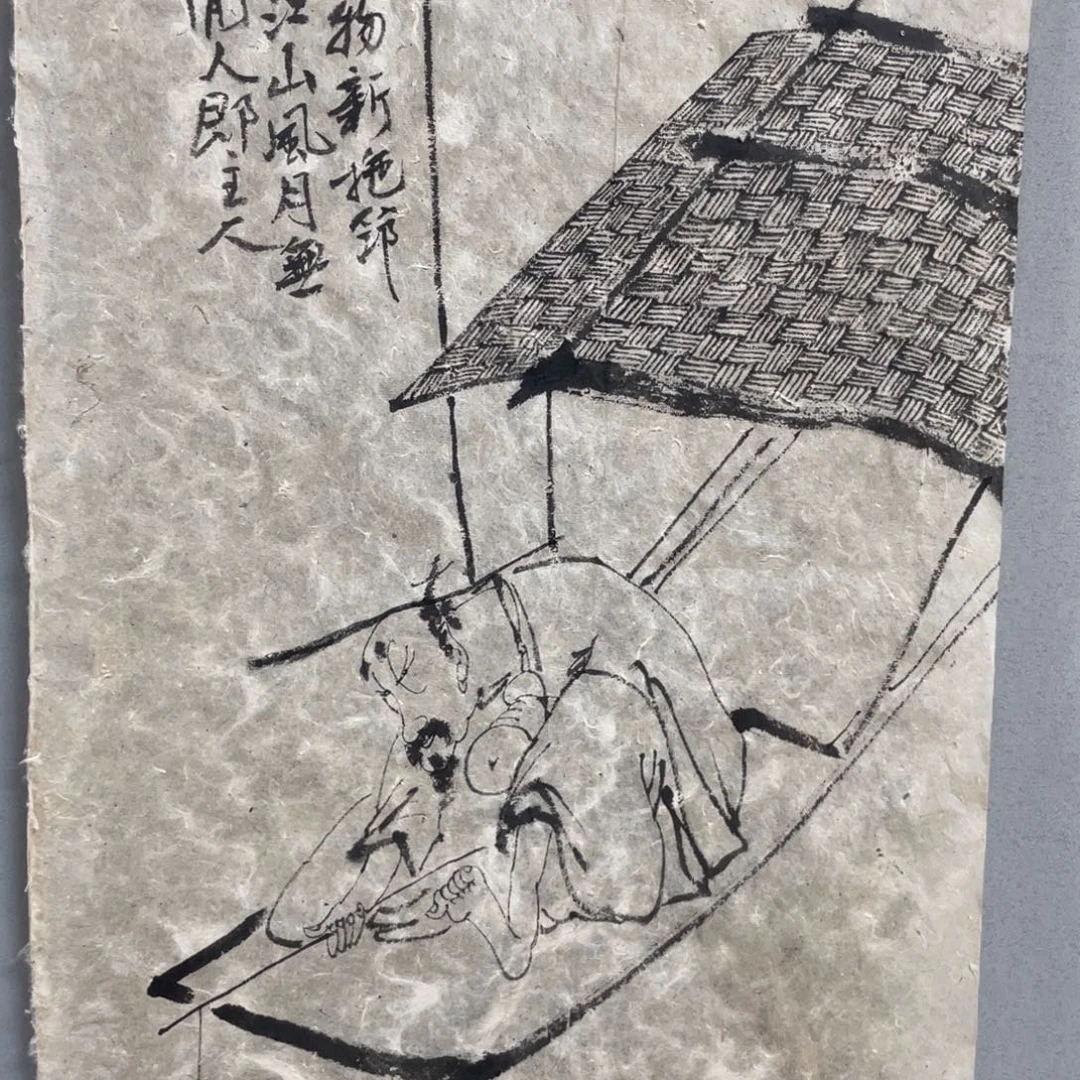 物新拖筇
江山風月無
閒人即主人